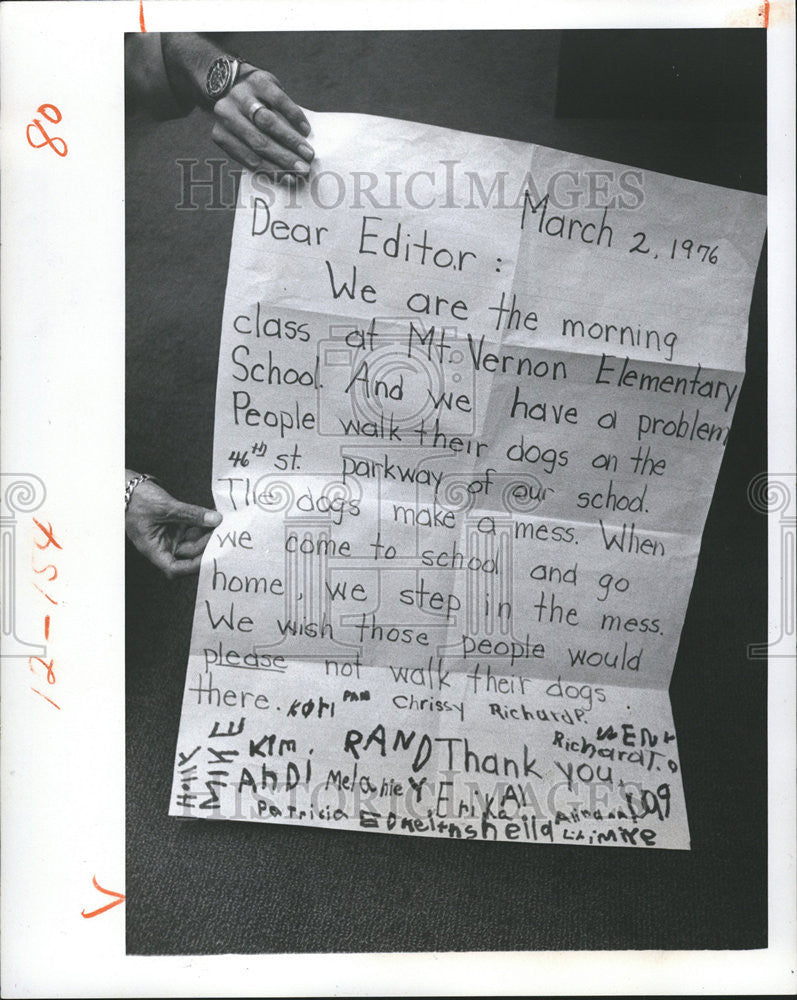 80
12-154
HISTORIC IMAGES
March 2, 1976
Dear Editor:
We are the morning
class at Mt. Vernon Elementary
School. And we have a problem.
People walk their dogs on the
46th st. parkway of our school.
The dogs make a mess. When
we come to school and go
home, we step in the mess.
We wish those people would
please not walk their dogs
there.
Kori Pam Chrissy Richard P.
Holly MIKE Kim. RAND Thank you. Richard T.
AhDI Melanie Erika Al
Patricia ED Keith sheila Mike
HISTORIC IMAGES